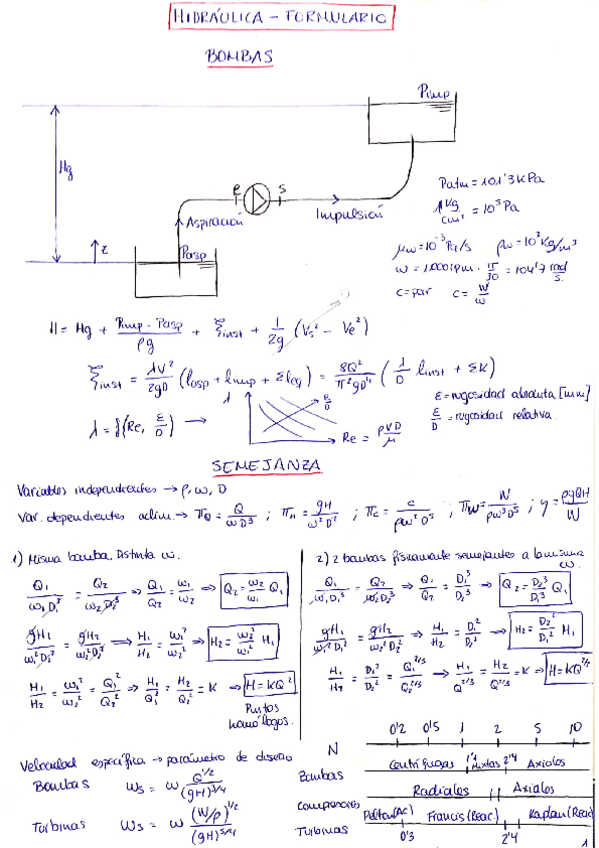 HIDRÁULICA - FORMULARIO
BOMBAS
Pimp
Hg
e
s
Aspiración
Impulsión
z
Pasp
Patm = 101'3 kPa
1 kg/cm² = 10⁵ Pa
μw = 10⁻³ Pa/s ρw = 10³ kg/m³
ω = 1000 rpm · π/30 = 104'7 rad/s
c = par c = W/ω
H = Hg + (Pimp - Pasp)/ρg + ξinst + 1/2g (Vs² - Ve²)
0
ξinst = λV²/2gD (lasp + limp + Σleq) = 8Q²/π²gD⁴ (λ/D linst + ΣK)
ε = rugosidad absoluta [mm]
ε/D = rugosidad relativa
λ = f(Re, ε/D) →
λ
Re = ρVD/μ
SEMEJANZA
Variables independientes → ρ, ω, D
Var. dependientes adim. → πQ = Q/ωD³ ; πH = gH/ω²D² ; πc = c/ρω²D⁵ ; πW = W/ρω³D⁵ ; η = ρgQH/W
1) Misma bomba. Distinta ω.
Q₁/ω₁D₁³ = Q₂/ω₂D₂³ ⇒ Q₁/Q₂ = ω₁/ω₂ ⇒ Q₂ = ω₂/ω₁ Q₁
gH₁/ω₁²D₁² = gH₂/ω₂²D₂² ⇒ H₁/H₂ = ω₁²/ω₂² ⇒ H₂ = ω₂²/ω₁² H₁
H₁/H₂ = ω₁²/ω₂² = Q₁²/Q₂² ⇒ H₁/Q₁² = H₂/Q₂² = K ⇒ H = KQ²
Puntos homólogos.
2) 2 bombas físicamente semejantes a la misma ω.
Q₁/ω₁D₁³ = Q₂/ω₂D₂³ ⇒ Q₁/Q₂ = D₁³/D₂³ ⇒ Q₂ = D₂³/D₁³ Q₁
gH₁/ω₁²D₁² = gH₂/ω₂²D₂² ⇒ H₁/H₂ = D₁²/D₂² ⇒ H₂ = D₂²/D₁² H₁
H₁/H₂ = D₁²/D₂² = Q₁^2/3/Q₂^2/3 ⇒ H₁/Q₁^2/3 = H₂/Q₂^2/3 = K ⇒ H = KQ^2/3
Velocidad específica → parámetro de diseño
Bombas ωs = ω Q^1/2/(gH)^3/4
Turbinas ωs = ω (W/ρ)^1/2/(gH)^5/4
0'2 0'5 1 2 5 10
N
Bombas Centrífugas Mixtas 2'4 Axiales
Compresores Radiales Axiales
Turbinas Pelton (Ac) Francis (Reac) Kaplan (Reac)
0'3 2'4
1